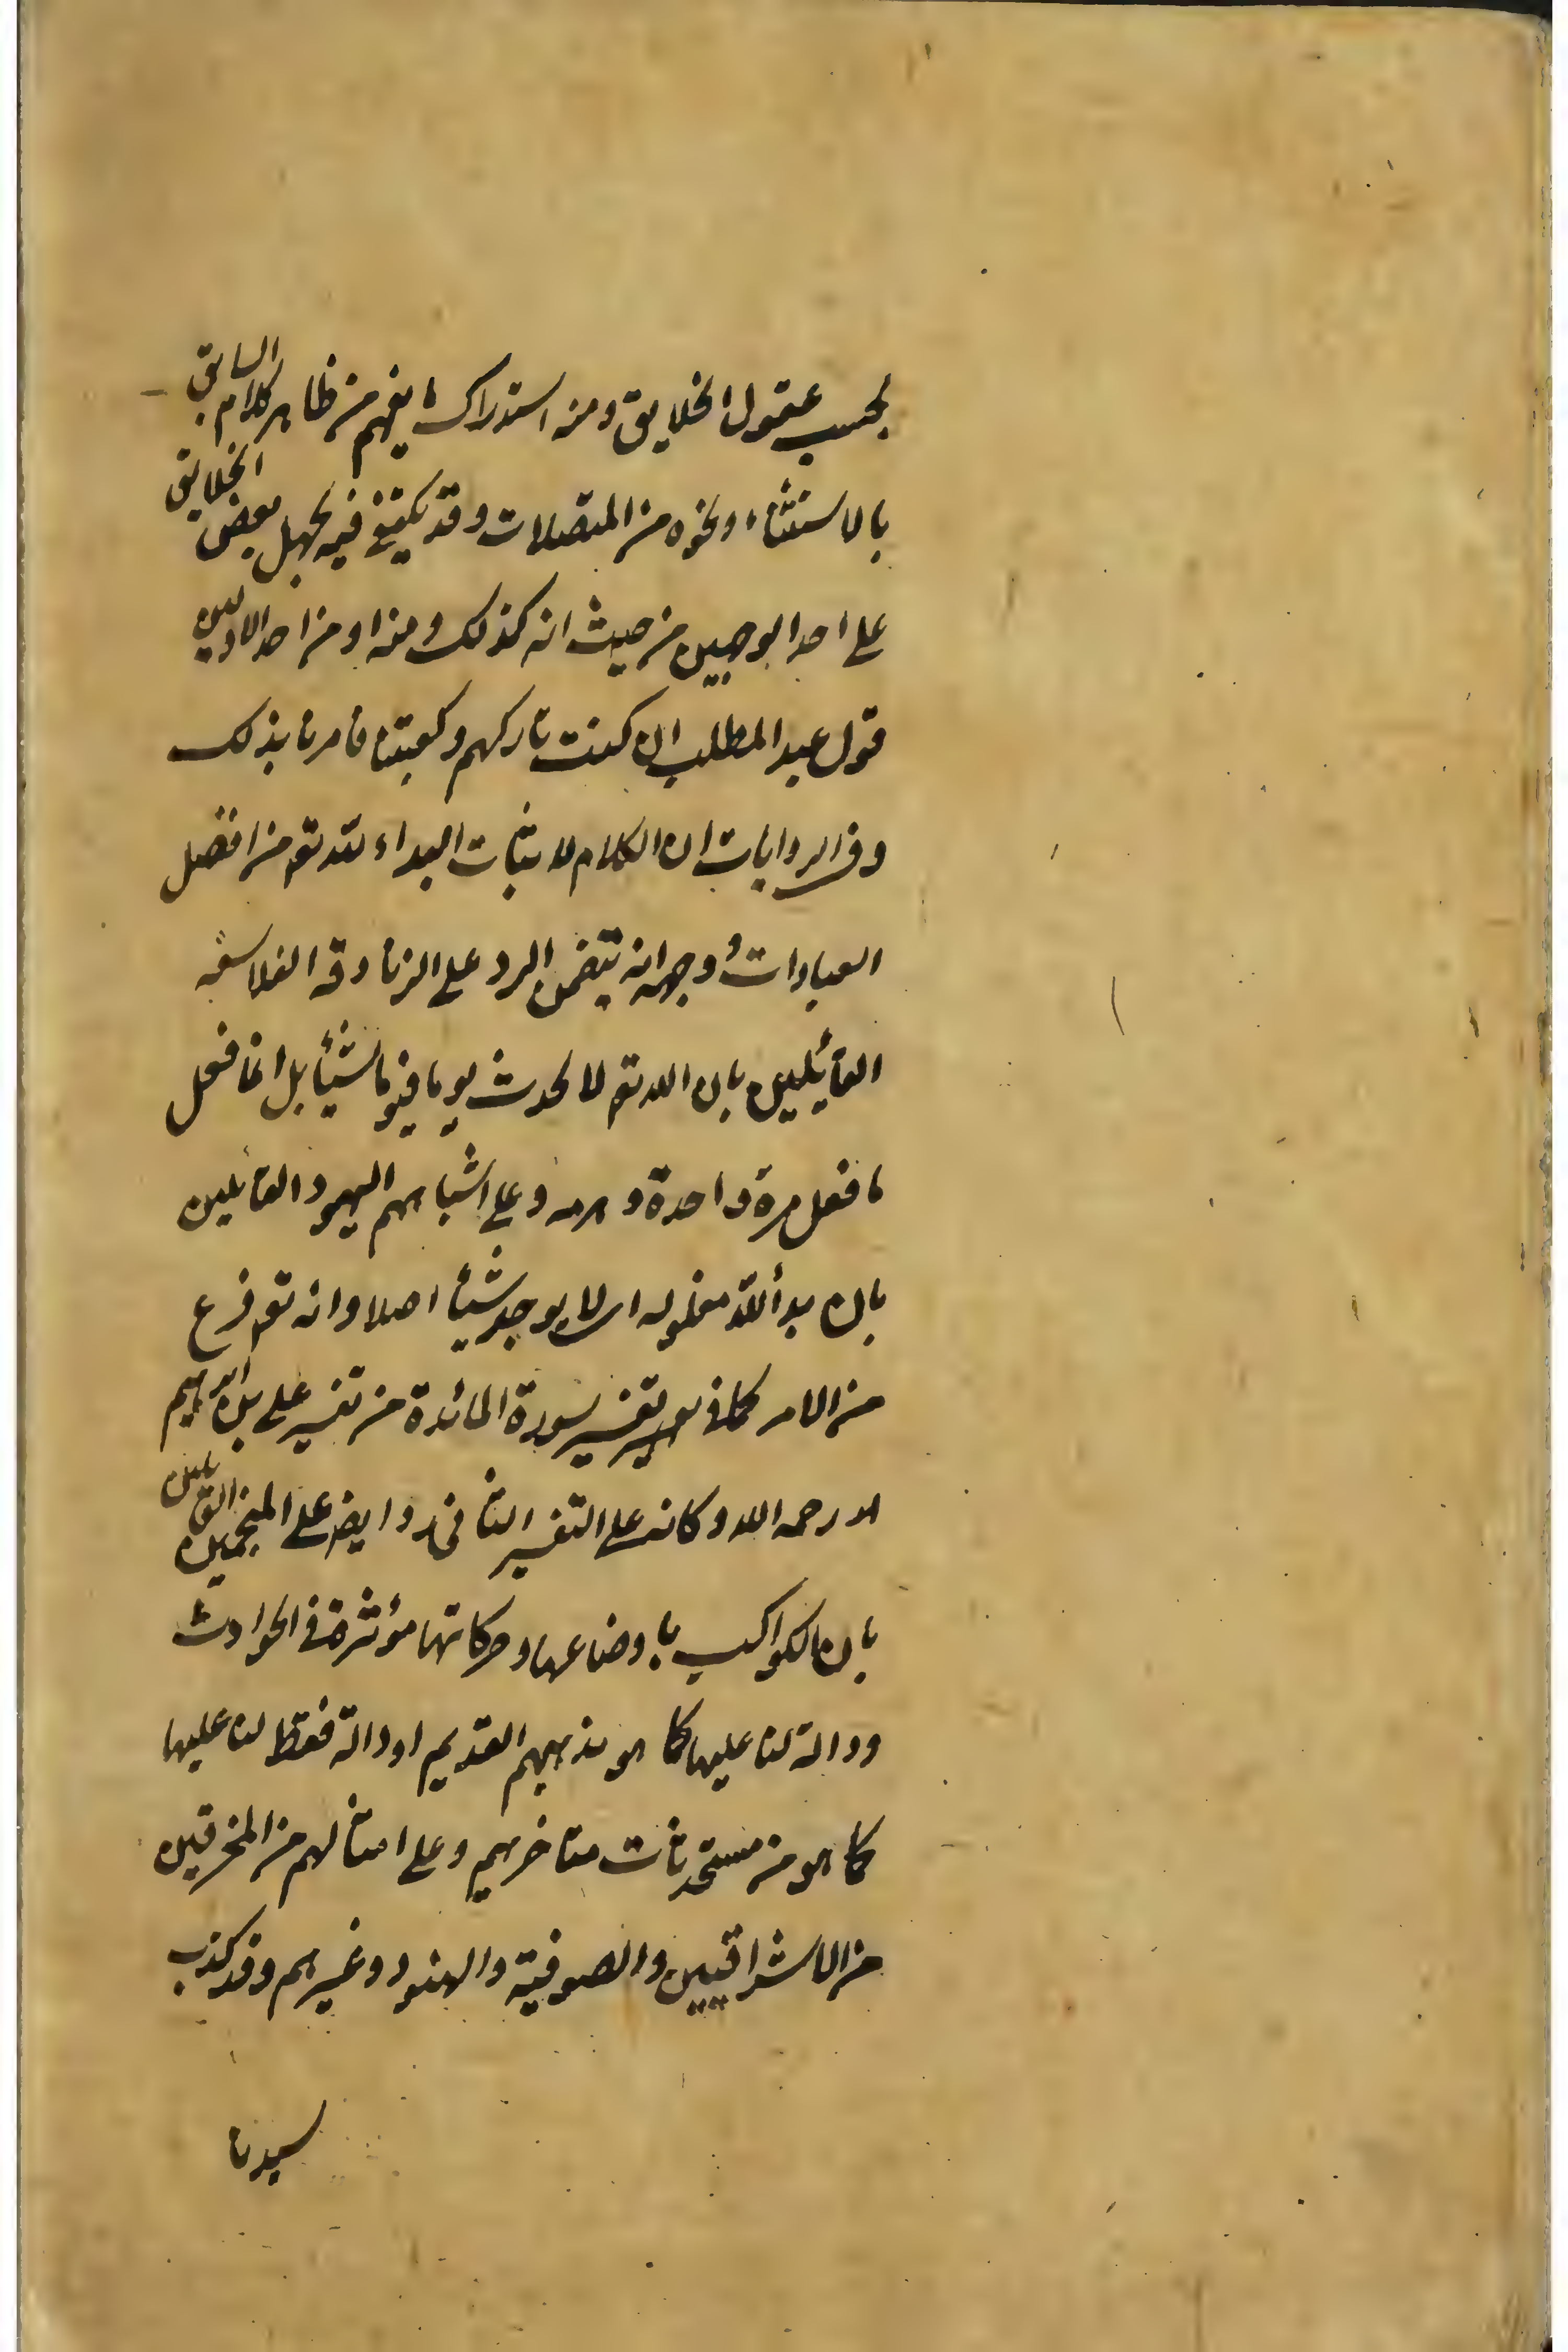 بحسب عقول الخلايق ومنه استدراك ما يفهم من ظاهر كلام السابق
بالاستثناء ونحوه من المتصلات وقد يكتفى فيه بجهل بعض الخلايق
على احد الوجهين من حيث انه كذلك ومنه او من احد الاولين
قول عبد المطلب ان كنت تاركهم وكعبتنا فامر ما بذلك
وفى الروايات ان الكلام لاثبات البداء لله تع من افضل
العبادات وجهه انه يتضمن الرد على الزنادقه الفلاسفه
القائيلين بان الله تع لا يحدث يوما فيوما شيئا بل انما فعل
ما فعل مرة واحدة وهرمه وعلى اشباههم اليهود القائلين
بان يد الله مغلوله اى لا يوجد شيئا اصلا وانه تع فرغ
من الامر كما فى تفسير سورة المائدة من تفسير على بن ابراهيم
له رحمه الله وكانه على التفسير الثانى رد ايض على المنجمين القايلين
بان الكواكب باوضاعها وحركاتها مؤثرة فى الحوادث
ودالة لنا عليها كما هو مذهبهم القديم او دالة فقط لنا عليها
كما هو من مستحدثات متاخريهم وعلى امثالهم من المخرقين
من الاشراقيين والصوفية والهنود وغيرهم وقد كذب
سيدنا